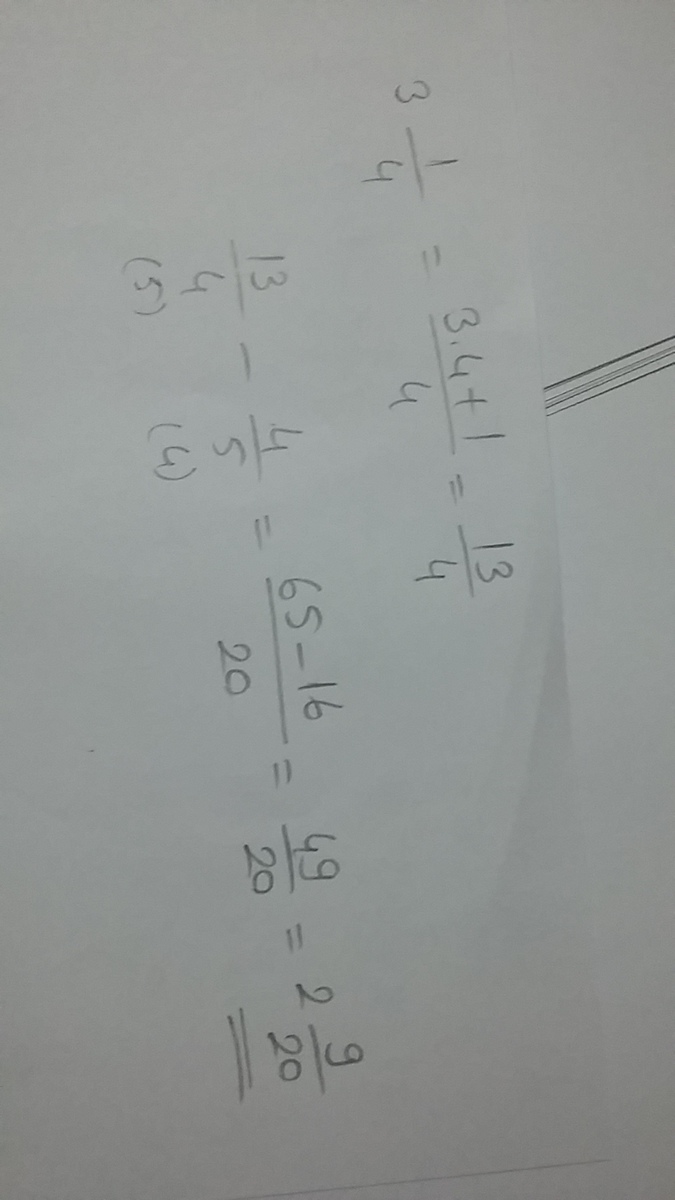 3 1/4 = 3.4+1/4 = 13/4
13/4 - 4/5 = 65-16/20 = 49/20 = 2 9/20
(5) (4)